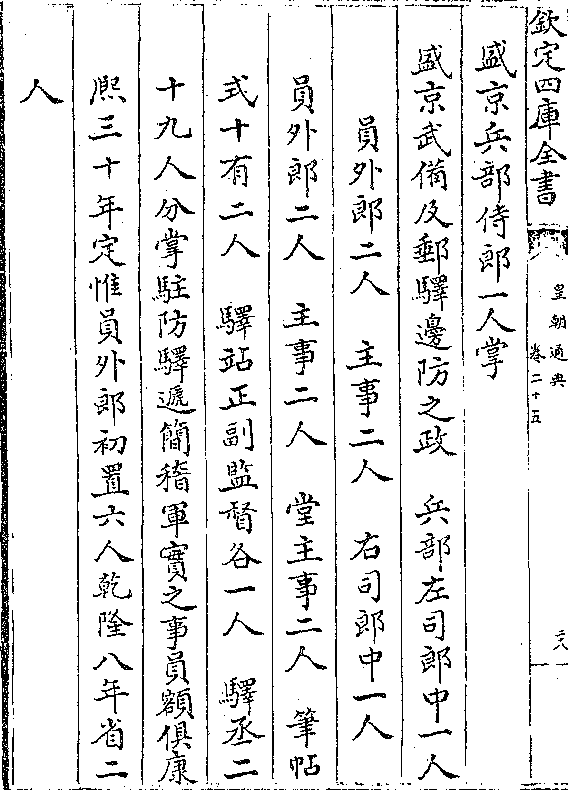 欽定四庫全書
皇朝通典
卷二十五
盛京兵部侍郎一人掌
盛京武備及郵驛邊防之政　兵部左司郎中一人
員外郎二人　主事二人　右司郎中一人
員外郎二人　主事二人　堂主事二人　筆帖
式十有二人　驛站正副監督各一人　驛丞二
十九人分掌駐防驛遞簡稽軍實之事員額俱康
熙三十年定惟員外郎初置六人乾隆八年省二
人